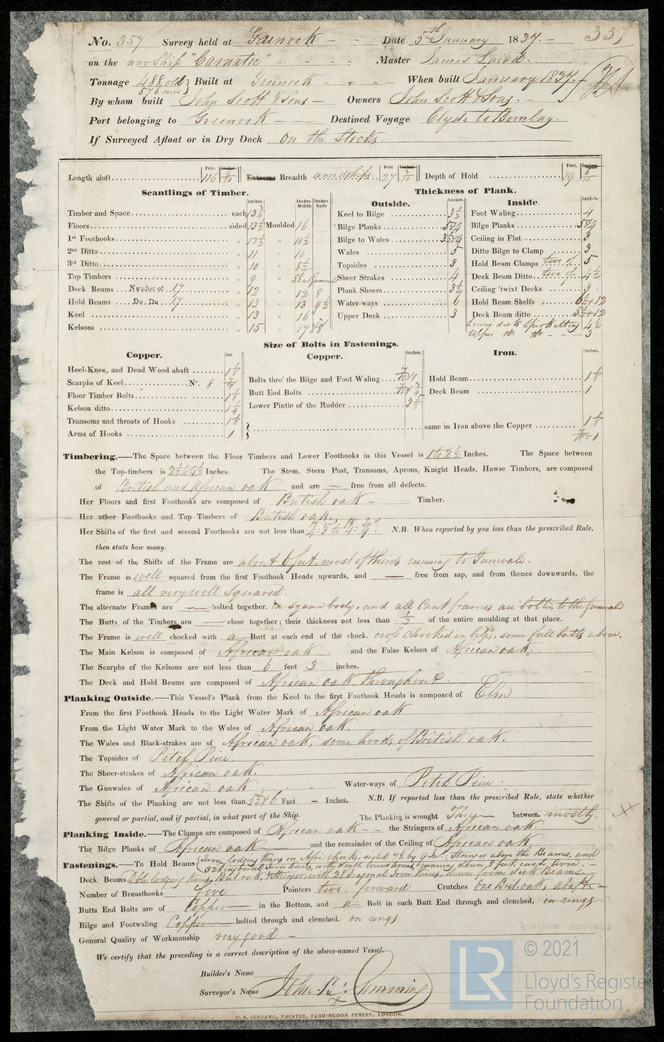 No. 357 Survey held at Greenock Date 5th January 1837. 357
on the new Ship "Carnatic" Master James Laird
Tonnage 488 old 576 new Built at Greenock When built January 1837
By whom built John Scott & Sons Owners John Scott & Sons.
Port belonging to Greenock Destined Voyage Clyde to Bombay.
If Surveyed Afloat or in Dry Dock On the Stocks
Length aloft 116 Extreme Breadth amidships 27 Depth of Hold 19
Scantlings of Timber. Thickness of Plank.
Outside. Inside.
Timber and Space each Keel to Bilge Foot Waling 4
Floors sided Moulded 16 Bilge Planks Bilge Planks
1st Foothooks Bilge to Wales Ceiling in Flat 3
2nd Ditto 11 10 Wales 5 Ditto Bilge to Clamp 3
3rd Ditto 10 Topsides 3 Hold Beam Clamps
Top Timbers Sheer Strakes 4 Deck Beam Ditto
Deck Beams 17 12 12 8 Plank Sheers Ceiling 'twixt Decks
Hold Beams 17 13 13 Water-ways 6 Hold Beam Shelfs
Keel 13 16 Upper Deck 3 Deck Beam ditto
Kelsons 15
Size of Bolts in Fastenings.
Copper. Copper. Iron.
Heel-Knee, and Dead Wood abaft
Scarphs of Keel No. 8 Bolts thro' the Bilge and Foot Waling Hold Beam
Floor Timber Bolts Butt End Bolts Deck Beam 1
Kelson ditto Lower Pintle of the Rudder
Transoms and throats of Hooks same in Iron above the Copper
Arms of Hooks 1
Timbering.—The Space between the Floor Timbers and Lower Foothooks in this Vessel is Inches. The Space between
the Top-timbers is Inches. The Stem, Stern Post, Transoms, Aprons, Knight Heads, Hawse Timbers, are composed
of British and African oak and are free from all defects.
Her Floors and first Foothooks are composed of British oak Timber.
Her other Foothooks and Top Timbers of British oak.
Her Shifts of the first and second Foothooks are not less than N.B. When reported by you less than the prescribed Rule,
then state how many.
The rest of the Shifts of the Frame are about 6 feet, most of them running to Gunwale.
The Frame is well squared from the first Foothook Heads upwards, and free from sap, and from thence downwards, the
frame is all very well squared.
The alternate Frames are bolted together. in square body, and all Cant frames are bolted to the gunwale
The Butts of the Timbers are close together; their thickness not less than of the entire moulding at that place.
The Frame is well chocked with a Butt at each end of the chock. some full butts above.
The Main Kelson is composed of African oak and the False Kelson of African oak.
The Scarphs of the Kelsons are not less than 6 feet 3 inches.
The Deck and Hold Beams are composed of African oak throughout.
Planking Outside.—This Vessel's Plank from the Keel to the first Foothook Heads is composed of Elm
From the first Foothook Heads to the Light Water Mark of African oak
From the Light Water Mark to the Wales of African oak.
The Wales and Black-strakes are of African oak, some hoods of British oak.
The Topsides of Pitch Pine.
The Sheer-strakes of African oak.
The Gunwales of African oak Water-ways of Pitch Pine.
The Shifts of the Planking are not less than 5 & 6 Feet Inches. N.B. If reported less than the prescribed Rule, state whether
general or partial, and if partial, in what part of the Ship. The Planking is wrought Three between. mostly.
Planking Inside.—The Clamps are composed of African oak the Stringers of African oak
The Bilge Planks of African oak and the remainder of the Ceiling of African oak
Fastenings.—To Hold Beams
Deck Beams
Number of Breasthooks five Pointers two forward Crutches
Butts End Bolts are of Copper in the Bottom, and a Bolt in each Butt End through and clenched. on rings
Bilge and Footwaling Copper bolted through and clenched. on rings
General Quality of Workmanship very good
We certify that the preceding is a correct description of the above-named Vessel.
Builder's Name
Surveyor's Name John B. Cumming
© 2021
LR Lloyd's Register
Foundation
C. F. SEYFANG, PRINTER, FARRINGDON STREET, LONDON.